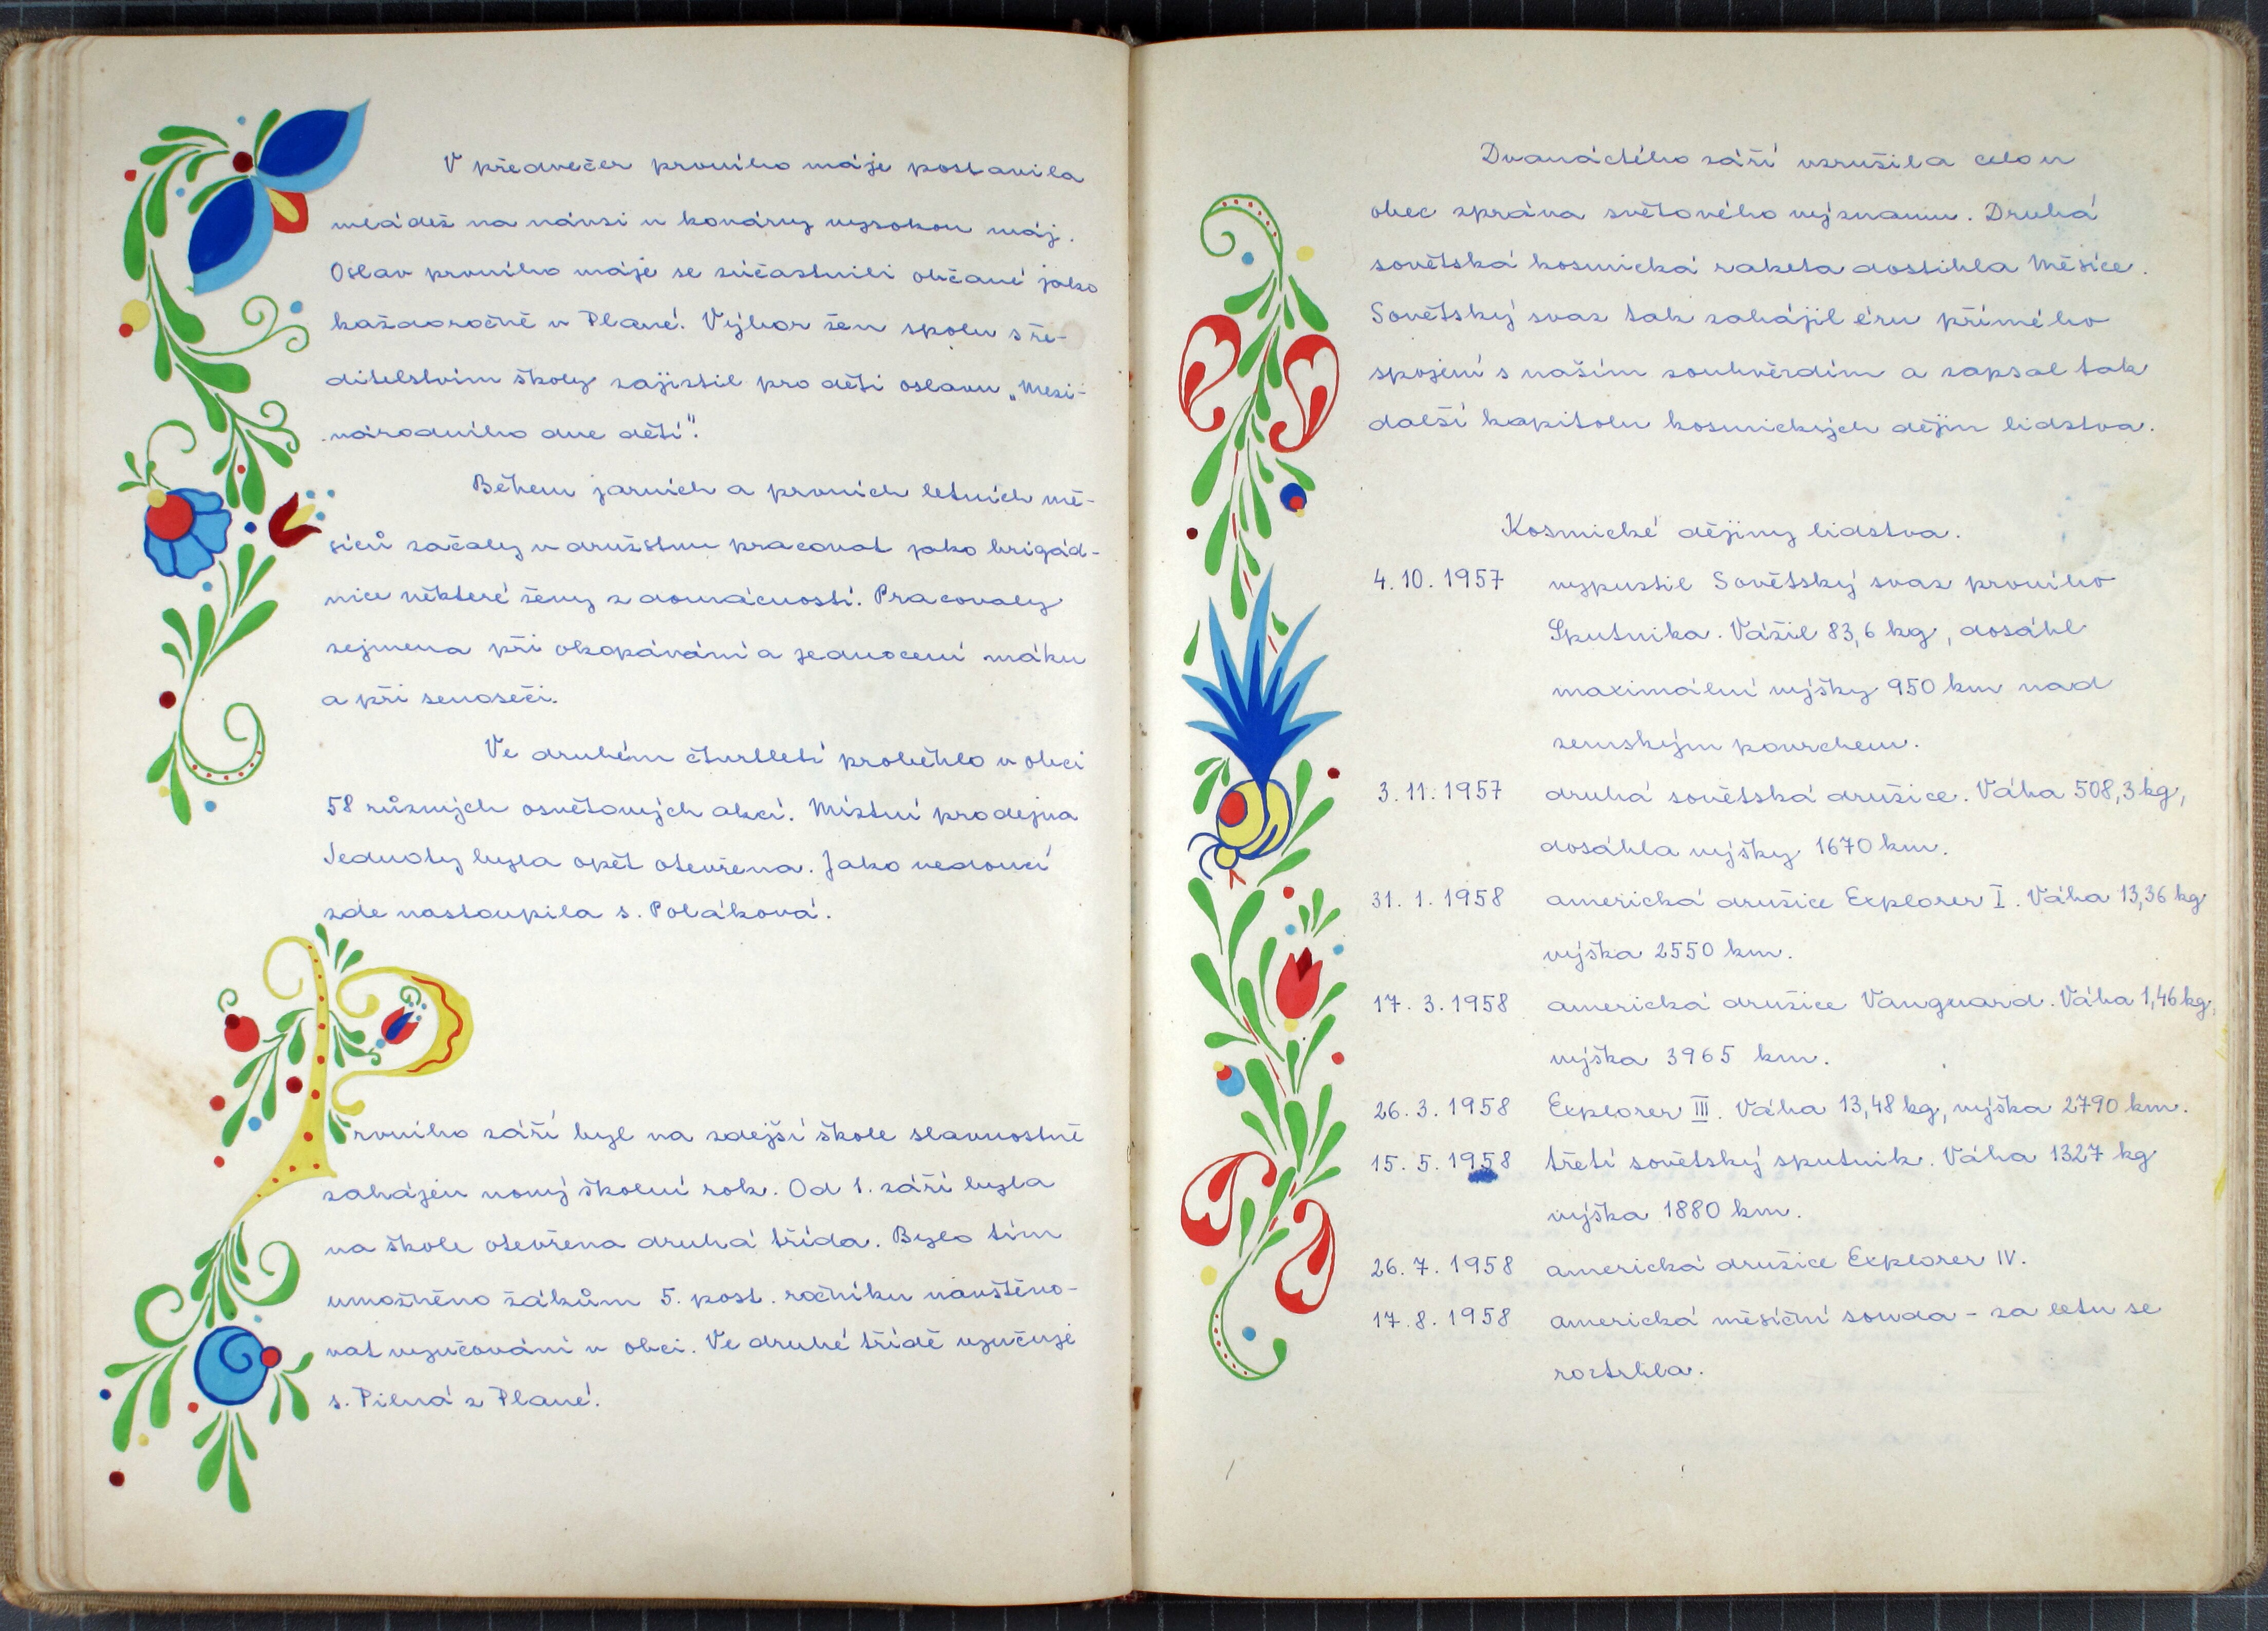 V předvečer prvního máje postavila
mládež na návsi u kovárny vysokou máj.
Oslav prvního máje se zúčastnili občané jako
každoročně v Plané. Výbor žen spolu s ře-
ditelstvím školy zajistil pro děti oslavu „Mezi-
národního dne dětí".
Během jarních a prvních letních mě-
síců začaly v družstvu pracovat jako brigád-
nice některé ženy z domácností. Pracovaly
zejmena při okopávání a jednocení máku
a při senoseči.
Ve druhém čtvrtletí proběhlo v obci
58 různých osvětových akcí. Místní prodejna
Jednoty byla opět otevřena. Jako vedoucí
zde nastoupila s. Poláková.
Prvního září byl na zdejší škole slavnostně
zahájen nový školní rok. Od 1. září byla
na škole otevřena druhá třída. Bylo tím
umožněno žákům 5. post. ročníku navštěvo-
vat vyučování v obci. Ve druhé třídě vyučuje
s. Pilná z Plané.
Dvanáctého září vzrušila celou
obec zpráva světového významu. Druhá
sovětská kosmická raketa dostihla Měsíce.
Sovětský svaz tak zahájil éru přímého
spojení s naším souhvězdím a zapsal tak
další kapitolu kosmických dějin lidstva.
Kosmické dějiny lidstva.
4. 10. 1957 vypustil Sovětský svaz prvního
Sputnika. Vážil 83,6 kg, dosáhl
maximální výšky 950 km nad
zemským povrchem.
3. 11. 1957 druhá sovětská družice. Váha 508,3 kg,
dosáhla výšky 1670 km.
31. 1. 1958 americká družice Explorer I. Váha 13,36 kg
výška 2550 km.
17. 3. 1958 americká družice Vanguard. Váha 1,46 kg,
výška 3965 km.
26. 3. 1958 Explorer III. Váha 13,48 kg, výška 2790 km.
15. 5. 1958 třetí sovětský sputnik. Váha 1327 kg
výška 1880 km.
26. 7. 1958 americká družice Explorer IV.
17. 8. 1958 americká měsíční sonda - za letu se
roztrhla.